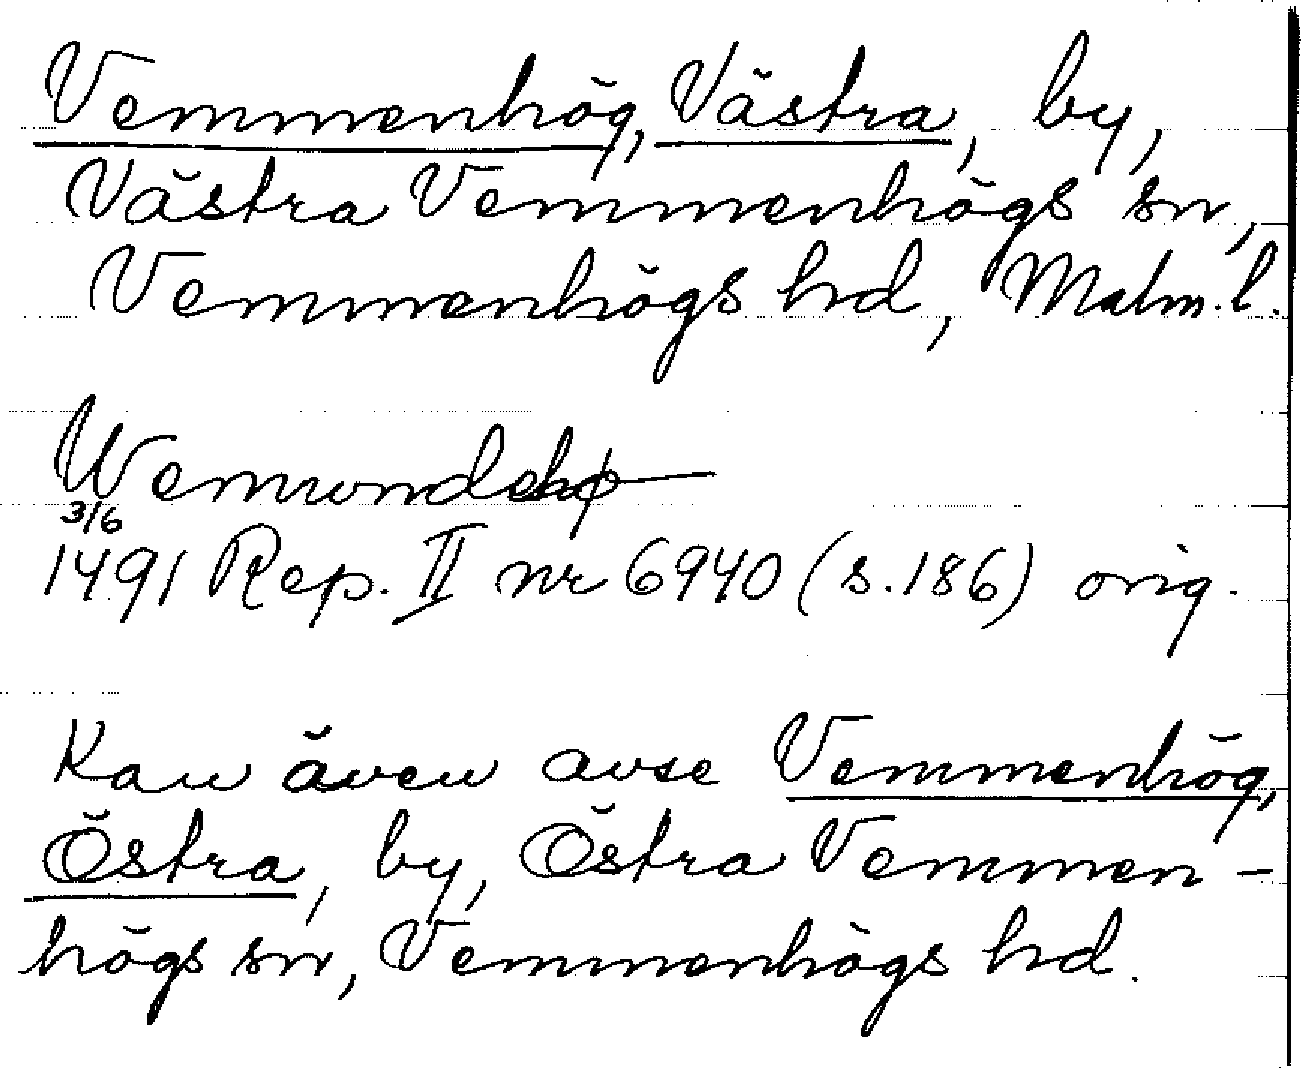 Vemmenhög, Västra, by,
Västra Vemmenhögs sn,
Vemmenhögs hd, Malm. l.
Wemundehø
3/6
1491 Rep. II nr 6940 (s. 186) orig.
Kan även avse Vemmenhög,
Östra, by, Östra Vemmen-
högs sn, Vemmenhögs hd.